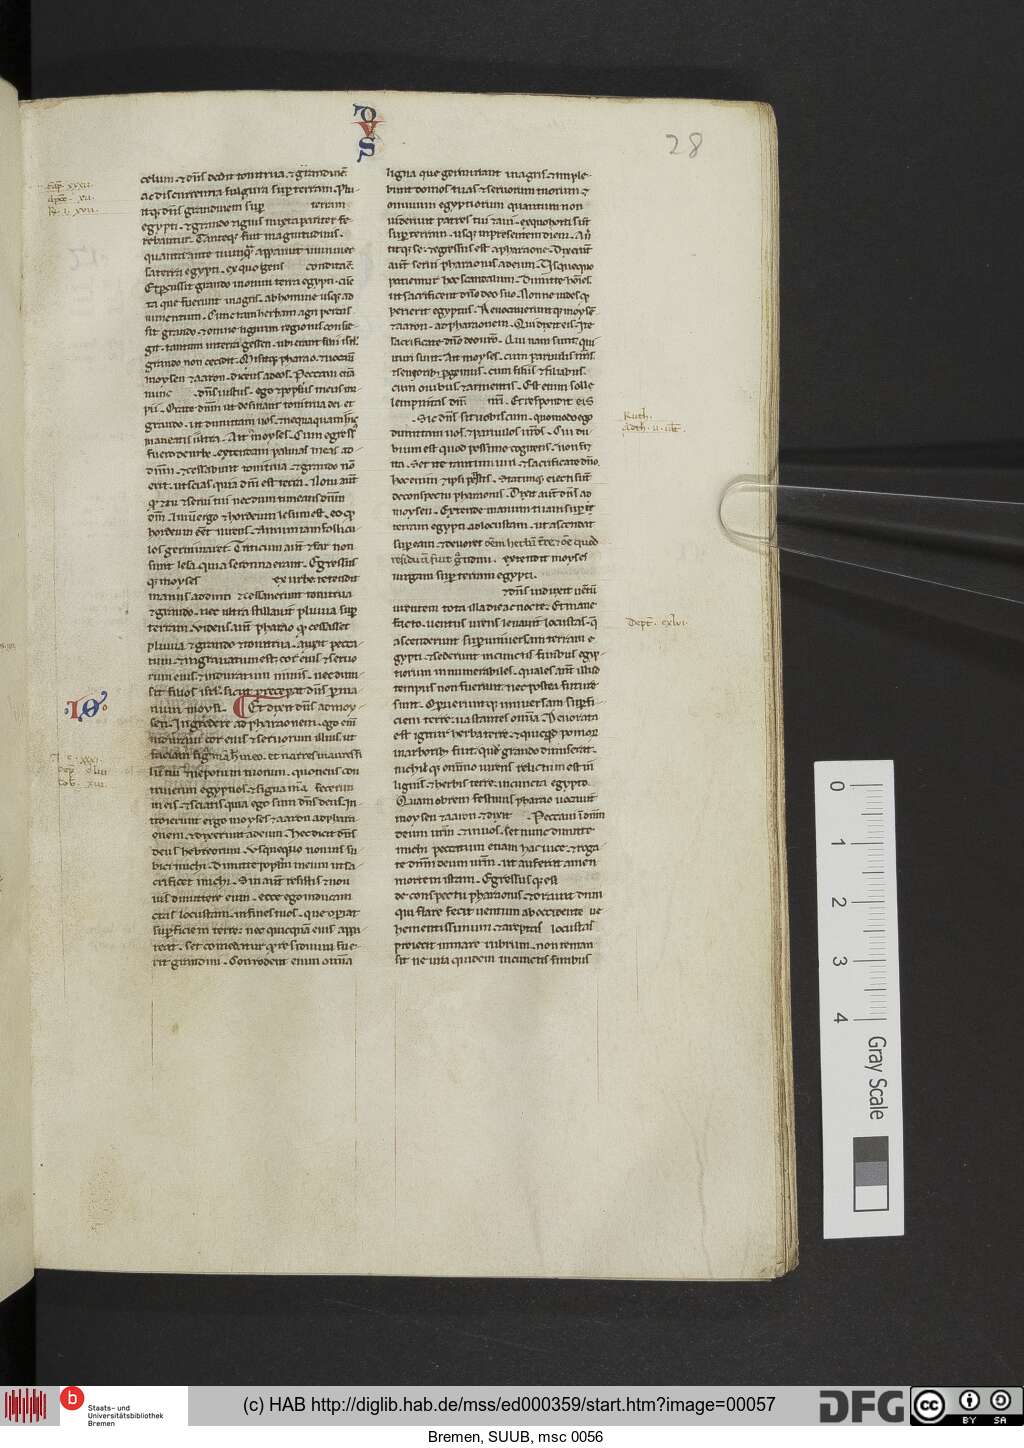 28
celum ⁊ dn̄s dedit tonitrua ⁊ grandinē
ac discurrentia fulgura sup̄ terram. Plu-
itq; dn̄s grandinem sup̄ terram
egypti. ⁊ grando ⁊ ignis mixta pariter fe-
rebantur. Tanteq; fuit magnitudinis.
quanta ante nunq̄ apparuit in uniuer-
sa terra egypti. ex quo gens condita ē.
Et p̄cussit grando in omni terra egypti. cūc-
ta que fuerunt in agris. ab homine usq; ad
iumentum. Cunctam herbam agri percus-
sit grando. ⁊ omne lignum regionis confre-
git. tantum in terra gessen. ubi erant filii isrl̄.
grando non cecidit. Misitq; pharao. ⁊ uocauit
moysen ⁊ aaron. dicens ad eos. Peccaui etiā
nunc. dn̄s iustus. ego ⁊ pop̄lus meus im-
pii. Orate dn̄m ut desinant tonitrua dei et
grando. ut dimittam uos. ⁊ nequaquam hic
maneatis ultra. Ait moyses. Cum egress᷒
fuero de urbe. extendam palmas meas ad
dn̄m. ⁊ cessabunt tonitrua. ⁊ grando nō
erit. ut scias quia dn̄i est terra. Noui aūt
q̄ ⁊ tu ⁊ serui tui necdum timeatis dn̄m
dm̄. Linū ergo ⁊ hordeum lesum est. eo q̄
hordeum eēt uirens. ⁊ linum iam follicu-
los germinaret. Triticum aūt ⁊ far non
sunt lesa. quia serotina erant. Egressus
q; moyses ex urbe. tetendit
manus ad dn̄m ⁊ cessauerunt tonitrua
⁊ grando. nec ultra stillauit pluuia sup̄
terram. Videns aūt pharao q̄ cessasset
pluuia ⁊ grando ⁊ tonitrua. auxit pecca-
tum. ⁊ ingrauatum est cor eius ⁊ seruo-
rum eius ⁊ induratum nimis. nec dimi-
sit filios isrl̄. sicut preceperat dn̄s p̄ ma-
num moysi. Et dixit dn̄s ad moy-
sen. Ingredere ad pharaonem. ego enī
induraui cor eius ⁊ seruorum illius. ut
faciam signa mea h̄ in eo. et narres in aurib᷒
filii tui ⁊ nepotum tuorum. quotiens con-
triuerim egyptios. ⁊ signa mea fecerim
in eis. ⁊ sciatis quia ego sum dn̄s deus. In-
troierunt ergo moyses ⁊ aaron ad phara-
onem. ⁊ dixerunt ad eum. Hec dicit dn̄s
deus hebreorum. Vsquequo non uis su-
bici michi. Dimitte pop̄lm meum ut sa-
crificet michi. Sin aūt resistis ⁊ non
uis dimittere eum. ecce ego inducam
cras locustam. in fines tuos. que operiat
sup̄ficiem terre. nec quicquā eius appa-
reat. set comedatur q̄ residuum fue-
rit grandini. Corrodent enim omīa
ligna que germinant in agris ⁊ imple-
bunt domos tuas ⁊ seruorum tuorum ⁊
omnium egyptiorum. quantum non
uiderunt patres tui ⁊ aui. ex quo horti sūt
sup̄ terram. usq; in presentem diem. Auer-
titq; se. ⁊ egressus est a pharaone. Dixerūt
aūt serui pharaonis ad eum. Vsquequo
patiemur hoc scandalum. Dimitte hōies.
ut sacrificent dn̄o deo suo. Nonne uides q̄
perierit egyptus. Reuocauerunt q; moysē
⁊ aaron. ad pharaonem. Qui dixit eis. Ite
sacrificate dn̄o deo uro. Qui nam sunt qui
ituri sunt. Ait moyses. cum paruulis nr̄is
⁊ senioribus pergemus. cum filiis ⁊ filiabus.
cum ouibus ⁊ armentis. Est enim solle-
lempnitas dn̄i nr̄i. Et respondit eis
Sic dn̄s sit uobiscum. quomodo ego
dimittam uos. ⁊ paruulos ur̄os. Cui du-
bium est quod pessime cogitetis. non fiet
ita. Set ite tantum uiri. ⁊ sacrificate dn̄o.
hoc enim ⁊ ipsi petistis. Statimq; eiecti sūt
de conspectu pharaonis. Dixit aūt dn̄s ad
moysen. Extende manum tuam sup̄
terram egypti ad locustam. ut ascendat
sup̄ eam. ⁊ deuoret oēm herbā terre. ⁊ oē quod
residuū fuit grandini. extendit moyses
uirgam sup̄ terram egypti.
⁊ dn̄s induxit uentū
urentem tota illa die ac nocte. Et mane
facto. uentus urens leuauit locustas. q̄
ascenderunt sup̄ uniuersam terram e-
gypti. ⁊ sederunt in cunctis finibus egyp-
tiorum innumerabiles. quales ante illud
tempus non fuerant nec postea future
sunt. Operuerunt q; uniuersam sup̄fi-
ciem terre. uastantes omīa. Deuorata
est igitur herba terre. ⁊ quicq̄d pomorum
in arboribus fuit. que grando dimiserat.
nichil q; omīno uirens relictum est in
lignis ⁊ herbis terre. in cuncta egypto.
Quam obrem festinus pharao uocauit
moysen ⁊ aaron. ⁊ dixit. Peccaui ī dn̄m
deum ur̄m ⁊ in uos. set nunc dimitte
michi peccatum etiam hac uice. ⁊ roga-
te dn̄m deum ur̄m. ut auferat a me
mortem istam. Egressus q; est
de conspectu pharaonis. ⁊ orauit dn̄m
qui flare fecit uentum ab occidente ue-
hementissimum. ⁊ areptas locustas
proiecit in mare rubrum. non reman-
sit ne una quidem in cunctis finibus
Ruth.
Dept̄. cxlvi.
0
1
2
3
4
Gray Scale
b
Staats- und
Universitätsbibliothek
Bremen
(c) HAB http://diglib.hab.de/mss/ed000359/start.htm?image=00057
DFG
cc
BY SA
Bremen, SUUB, msc 0056